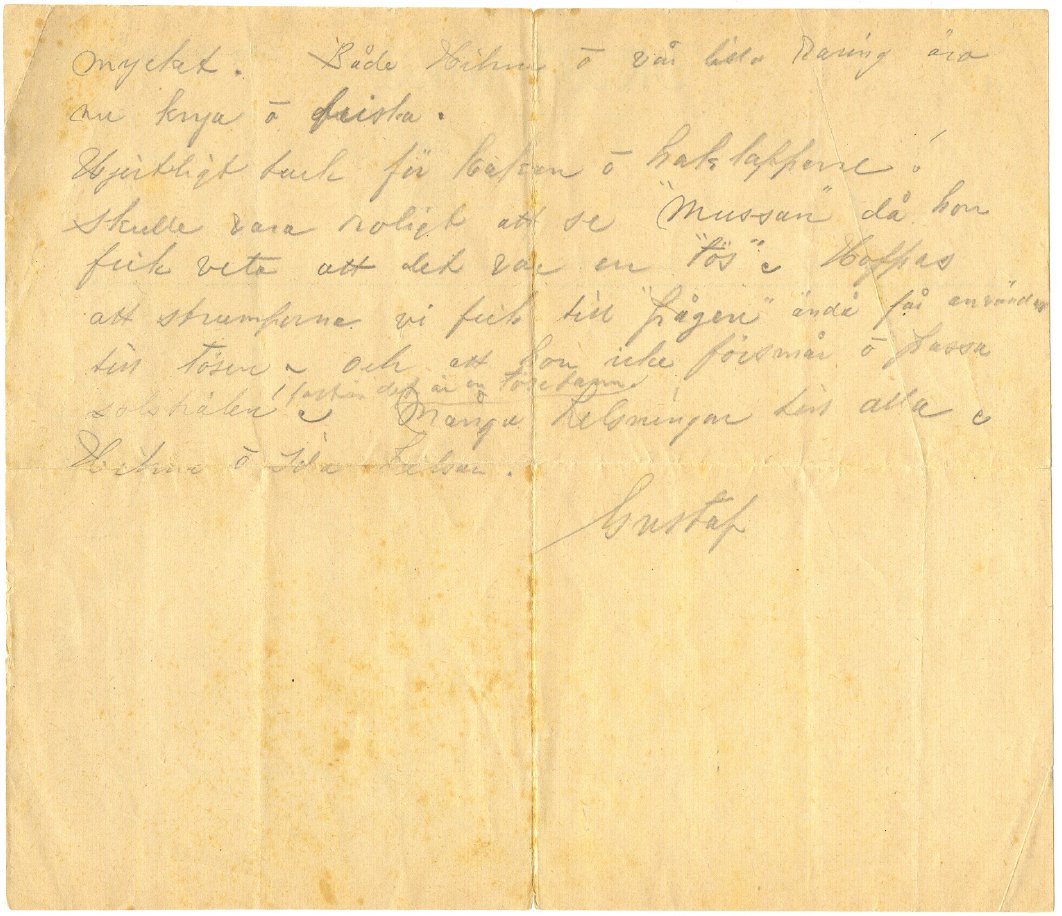 mycket. Både Hilma ō vår lilla Raring äro
nu krya ō friska.
Hjertligt tack för kakan ō haklapparne!
Skulle vara roligt att se "Mussan" då hon
fick veta att det var en "tös". Hoppas
att strumporna vi fick till "frågen" ändå får användas
till tösen – och att hon icke försmår ō passa
fastän det är en
solstrålen! Många helsningar till alla
Hilma ō Ida helsar.
Gustaf